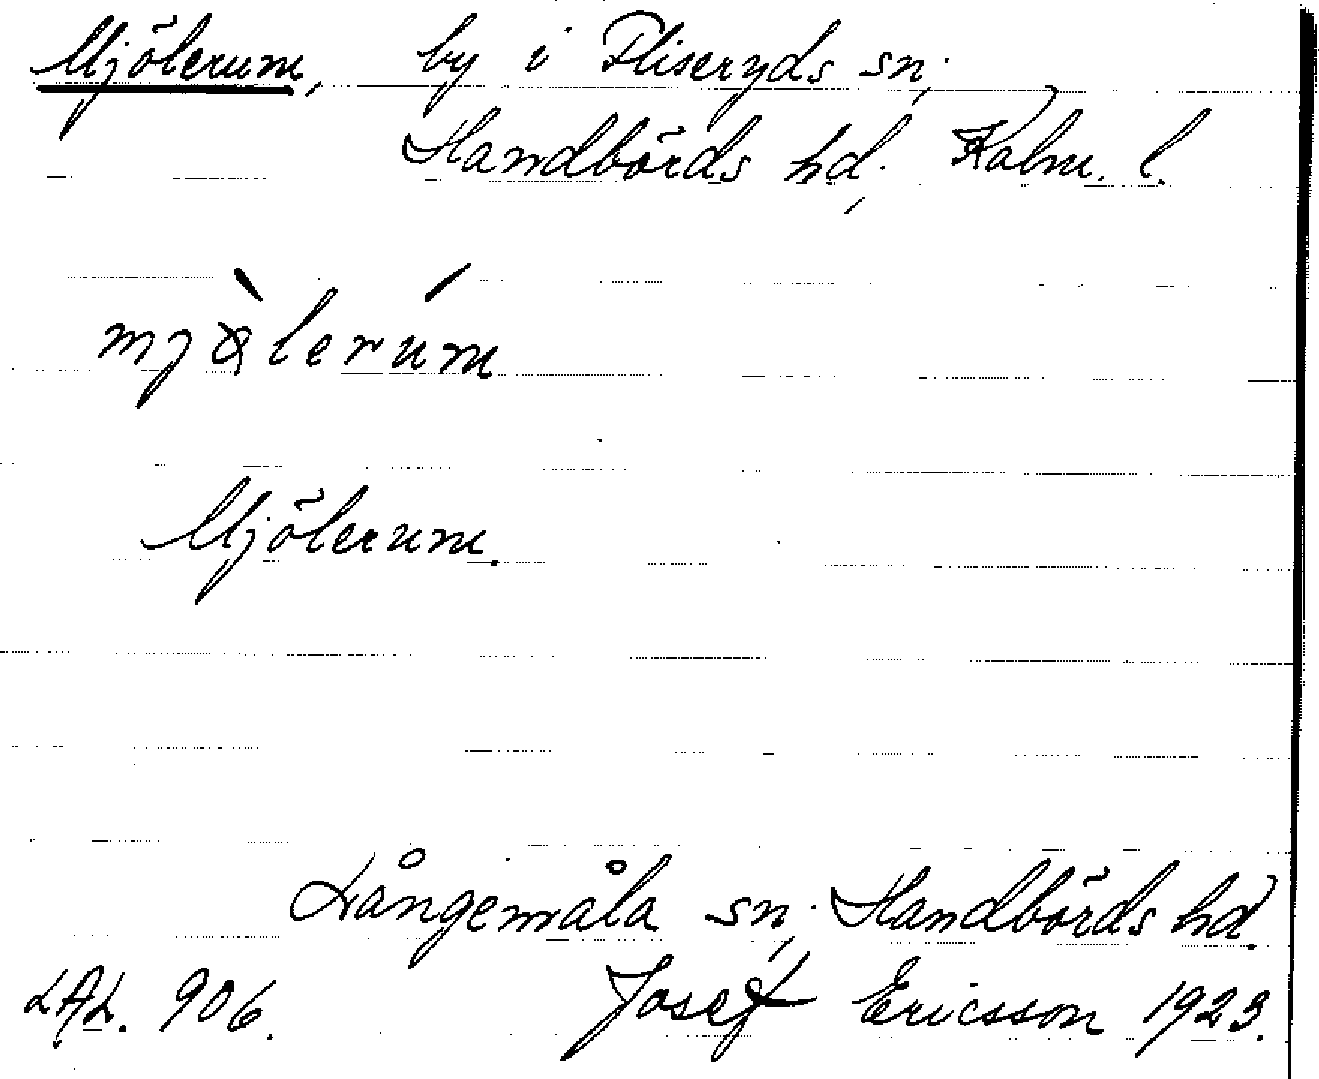 Mjölerum, by i Fliseryds sn;
Handbörds hd; Kalm. l.
Mjölerum.
Långemåla sn; Handbörds hd.
LAL. 906. Josef Ericsson 1923.